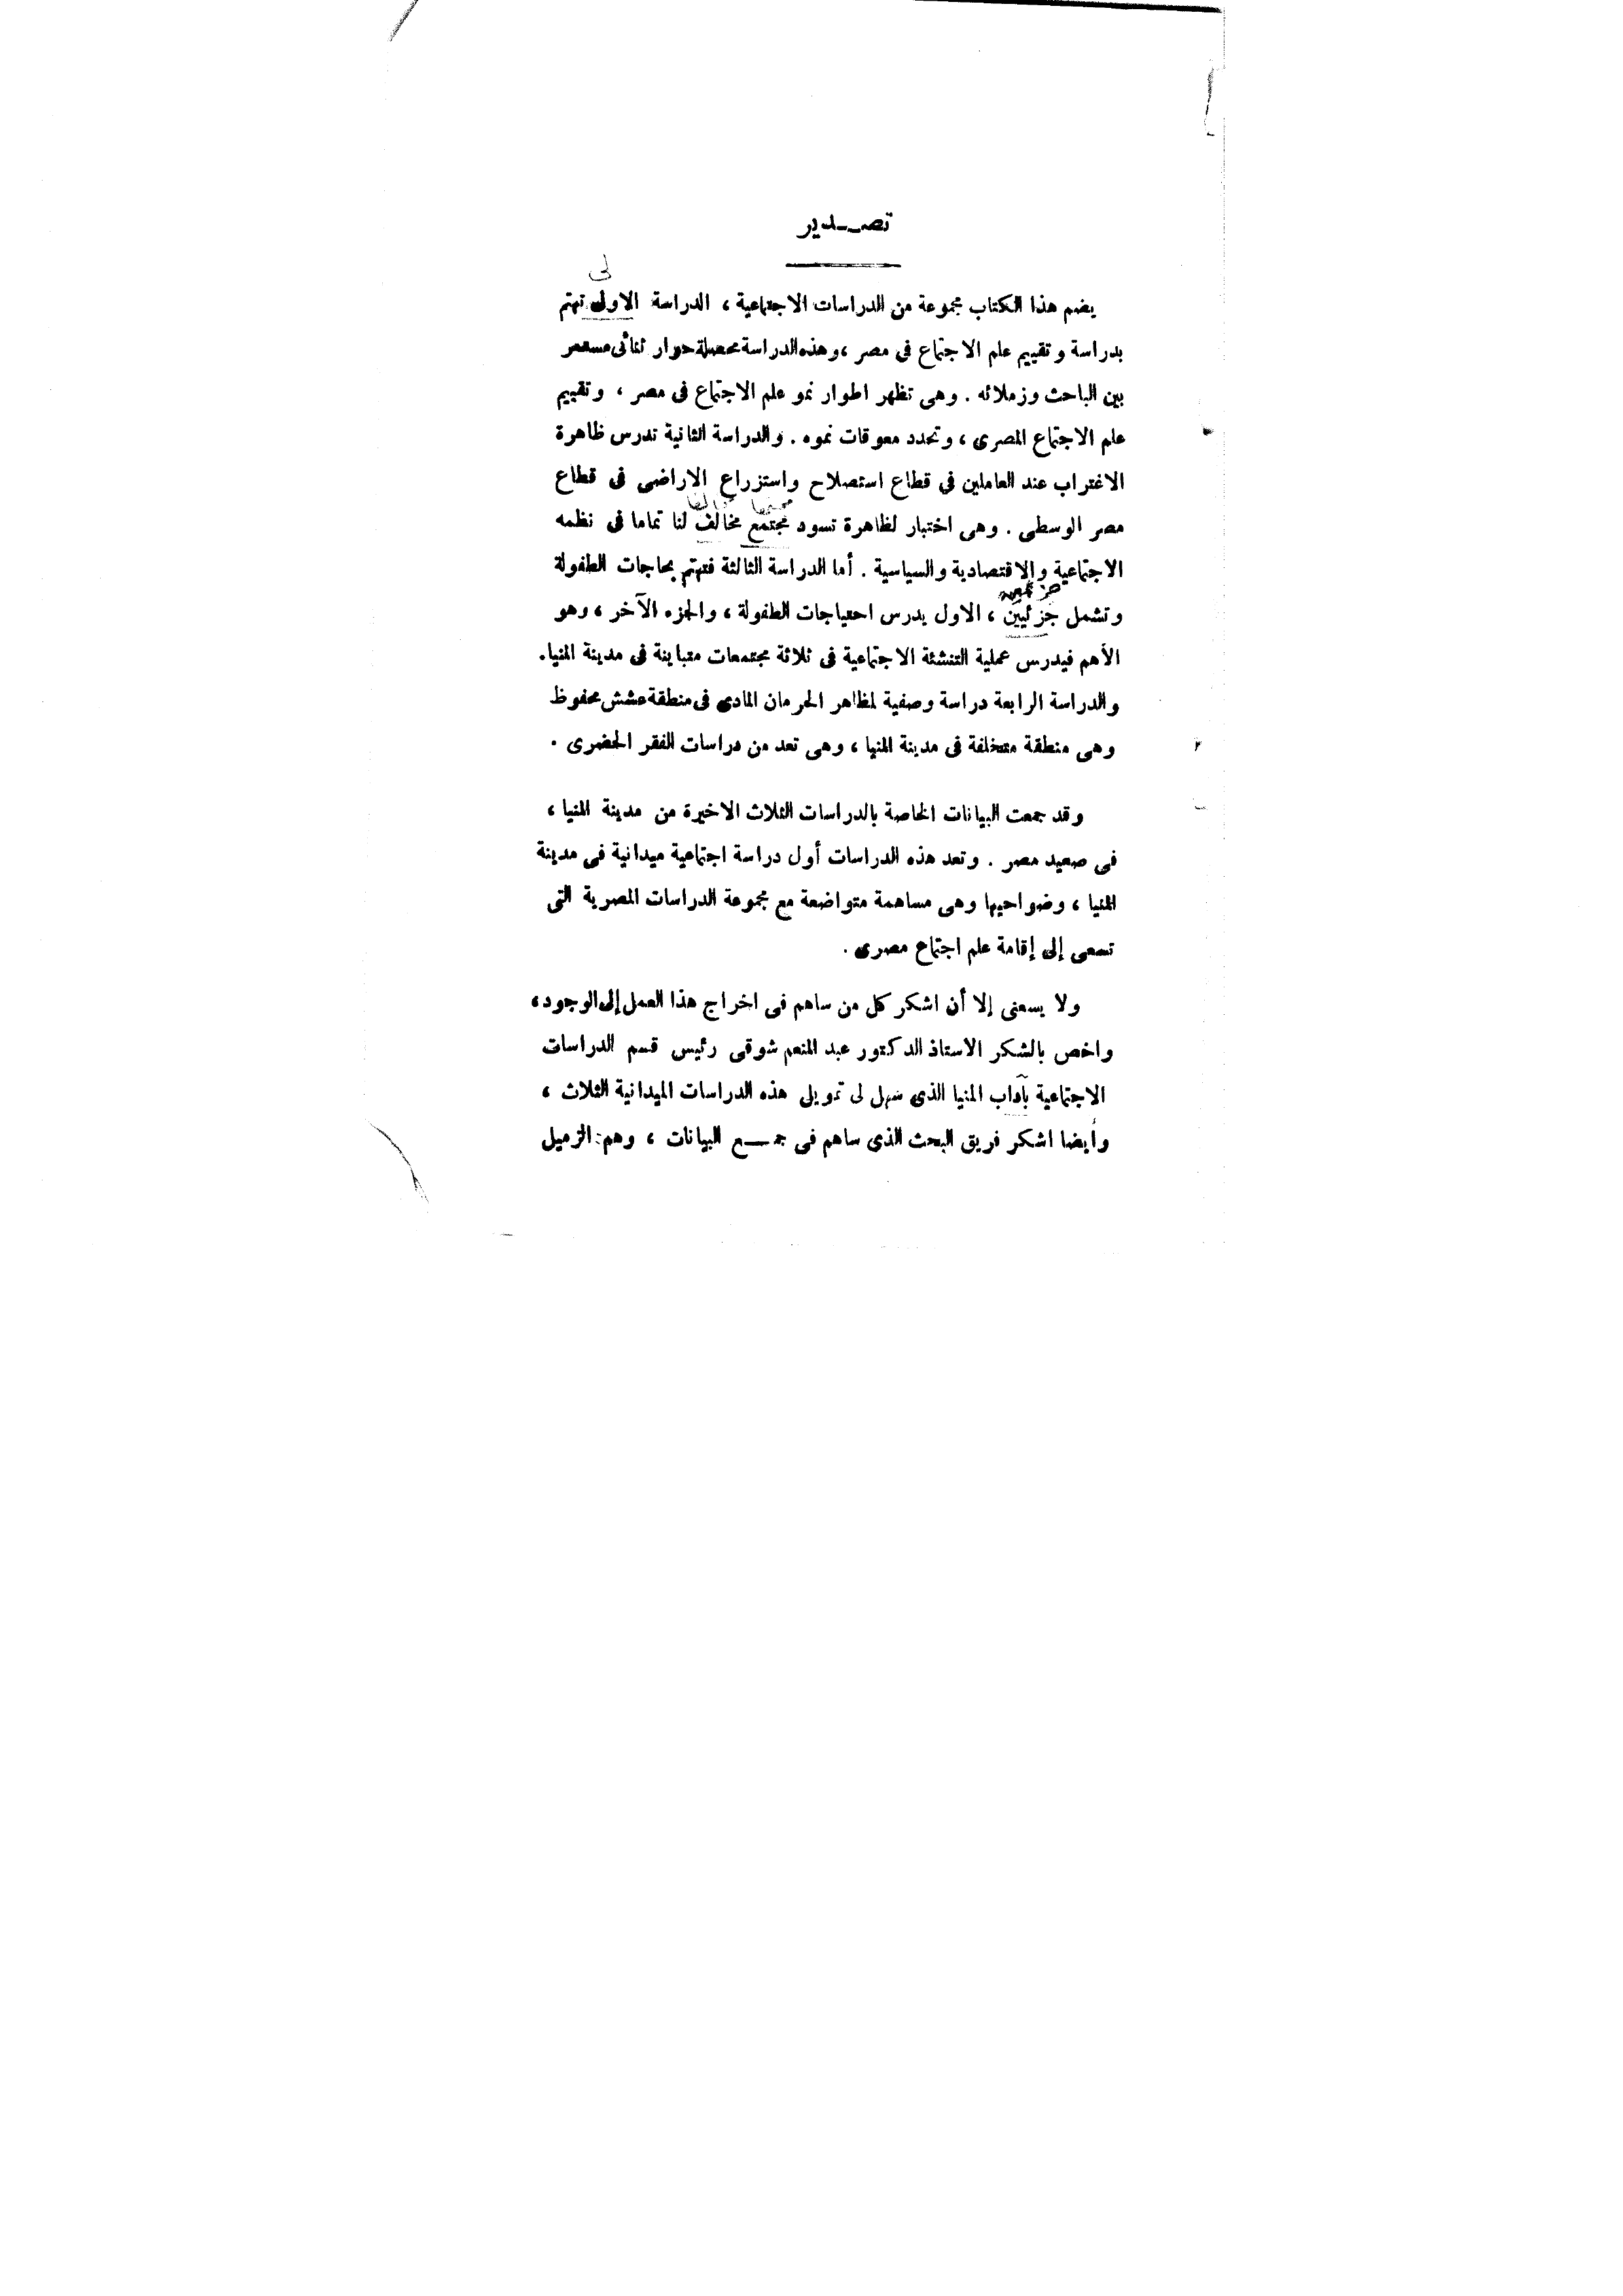 تصـــدير
لى
يضم هذا الكتاب مجموعة من الدراسات الاجتماعية ، الدراسة الاولى تهتم
بدراسة وتقييم علم الاجتماع فى مصر ، وهذه الدراسة محصلة حوار ثنائى مستمر
بين الباحث وزملائه . وهى تظهر اطوار نمو علم الاجتماع فى مصر ، وتقييم
علم الاجتماع المصرى ، وتحدد معوقات نموه . والدراسة الثانية تدرس ظاهرة
الاغتراب عند العاملين فى قطاع استصلاح واستزراع الاراضى فى قطاع
مجتمعا مخالفا
مصر الوسطى . وهى اختبار لظاهرة تسود مجتمع مخالف لنا تماما فى نظمه
الاجتماعية والاقتصادية والسياسية . أما الدراسة الثالثة فتهتم بحاجات الطفولة
وتشمل جزئيين ، الاول يدرس احتياجات الطفولة ، والجزء الآخر ، وهو
الأهم فيدرس عملية التنشئة الاجتماعية فى ثلاثة مجتمعات متباينة فى مدينة المنيا.
والدراسة الرابعة دراسة وصفية لمظاهر الحرمان المادى فى منطقة عشش محفوظ
وهى منطقة متخلفة فى مدينة المنيا ، وهى تعد من دراسات الفقر الحضرى .
وقد جمعت البيانات الخاصة بالدراسات الثلاث الاخيرة من مدينة المنيا ،
فى صعيد مصر . وتعد هذه الدراسات أول دراسة اجتماعية ميدانية فى مدينة
المنيا ، وضواحيها وهى مساهمة متواضعة مع مجموعة الدراسات المصرية التى
تسعى إلى إقامة علم اجتماع مصرى .
ولا يسعنى إلا أن اشكر كل من ساهم فى اخراج هذا العمل إلى الوجود ،
واخص بالشكر الاستاذ الدكتور عبد المنعم شوقى رئيس قسم الدراسات
الاجتماعية بآداب المنيا الذى سهل لى تمويل هذه الدراسات الميدانية الثلاث ،
وأيضا اشكر فريق البحث الذى ساهم فى جمـــع البيانات ، وهم : الزميل